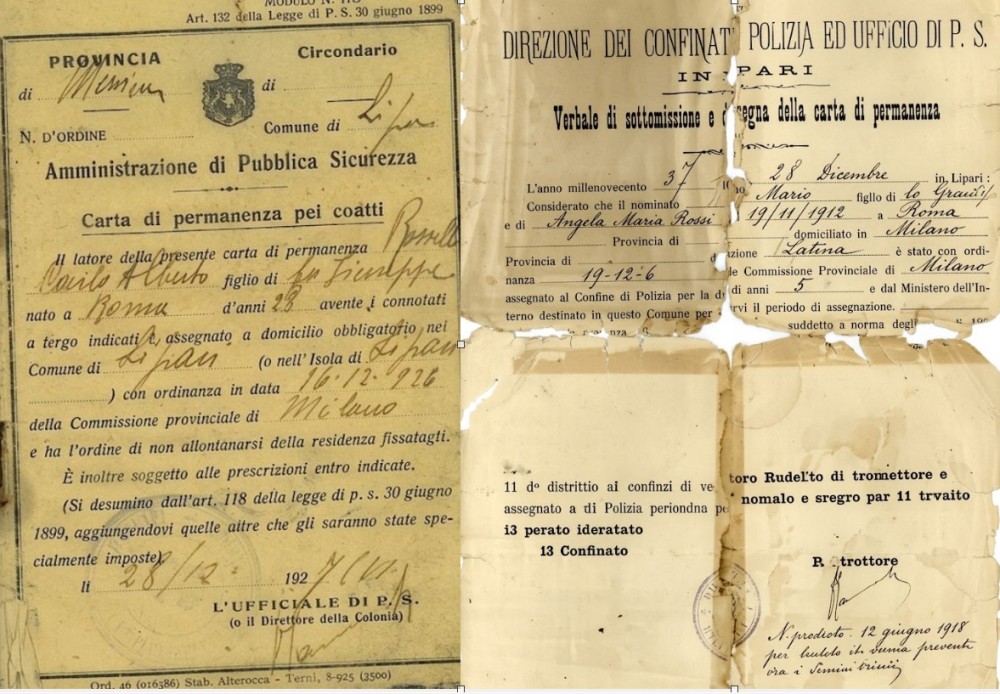 MODULO N. 113
Art. 132 della Legge di P. S. 30 giugno 1899
PROVINCIA
di Messina
Circondario
di
N. D'ORDINE
Comune di Lipari
Amministrazione di Pubblica Sicurezza
Carta di permanenza pei coatti
Il latore della presente carta di permanenza Rosselli
Carlo Alberto figlio di fu Giuseppe
nato a Roma d'anni 28 avente i connotati
a tergo indicati è assegnato a domicilio obbligatorio nei
Comune di Lipari (o nell' Isola di Lipari
) con ordinanza in data 16-12-926
della Commissione provinciale di Milano
e ha l'ordine di non allontanarsi della residenza fissatagli.
È inoltre soggetto alle prescrizioni entro indicate.
(Si desumino dall'art. 118 della legge di p. s. 30 giugno
1899, aggiungendovi quelle altre che gli saranno state spe-
cialmente imposte)
lì 28/12 1927
L'UFFICIALE DI P. S.
(o il Direttore della Colonia)
Ord. 46 (016586) Stab. Alterocca - Terni, 8-925 (3500)
DIREZIONE DEI CONFINAT POLIZIA ED UFFICIO DI P. S.
IN IPARI
Verbale di sottomissione e segna della carta di permanenza
L'anno millenovecento 37 28 Dicembre in Lipari :
Considerato che il nominato Mario figlio di lo
e di Angela Maria Rossi 19/11/1912 a Roma
Provincia di domiciliato in Milano
Provincia di azione Latina è stato con ordi-
nanza 19-12-6 le Commissione Provinciale di Milano
assegnato al Confine di Polizia per la d di anni 5 e dal Ministero dell'In-
terno destinato in questo Comune per rvi il periodo di assegnazione.
suddetto a norma degli
11 dº distrittio ai confinzi di ve
assegnato a di Polizia periondna pe
13 perato ideratato
13 Confinato
toro Rudel'to di tromettore e
nomalo e sregro par 11 trvaito
P. trottore
N. prodioto. 12 giugno 1918
per